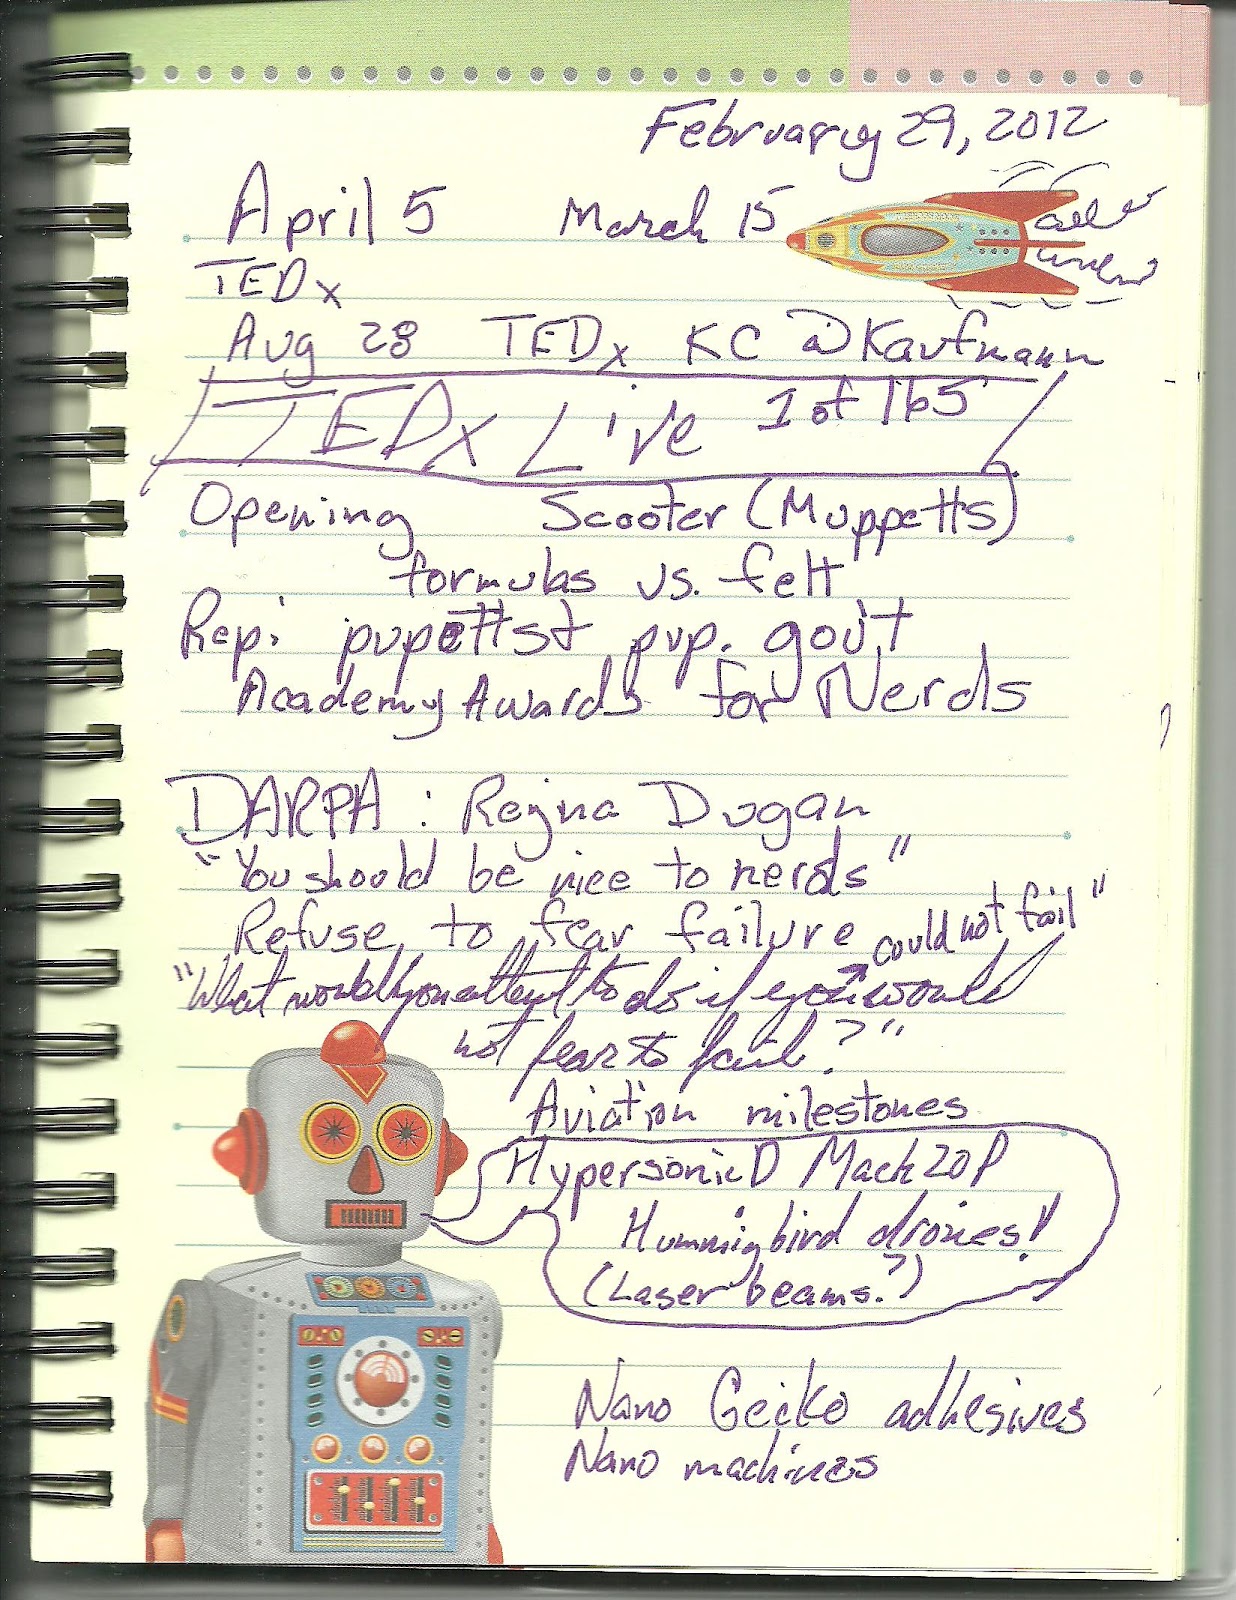 February 29, 2012
April 5 March 15
TEDx
Aug 28 TEDx KC @ Kaufmann
TEDx Live 1 of 165
Opening Scooter (Muppetts)
formulas vs. felt
Rep: pup. gov't
Academy Awards for Nerds
DARPA: Regina Dugan
"You should be nice to nerds"
Refuse to fear failure
could not fail"
"What would you attempt to do if you would
not fear to fail?"
Aviation milestones
Hypersonic Mach 20
Hummigbird drones!
(Laser beams?)
Nano Gecko adhesives
Nano machines